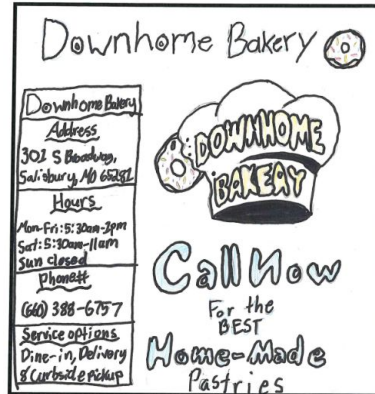 Downhome Bakery
Downhome Bakery
Address
302 S Broadway,
Salisbury, MO 65281
Hours
Mon-Fri: 5:30am-2pm
Sat: 5:30am-11am
Sun closed
Phone#
(660) 388-6757
Service options
Dine-in, Delivery
& Curbside Pickup
DOWNHOME
BAKERY
Call Now
For the
BEST
Home-Made
Pastries